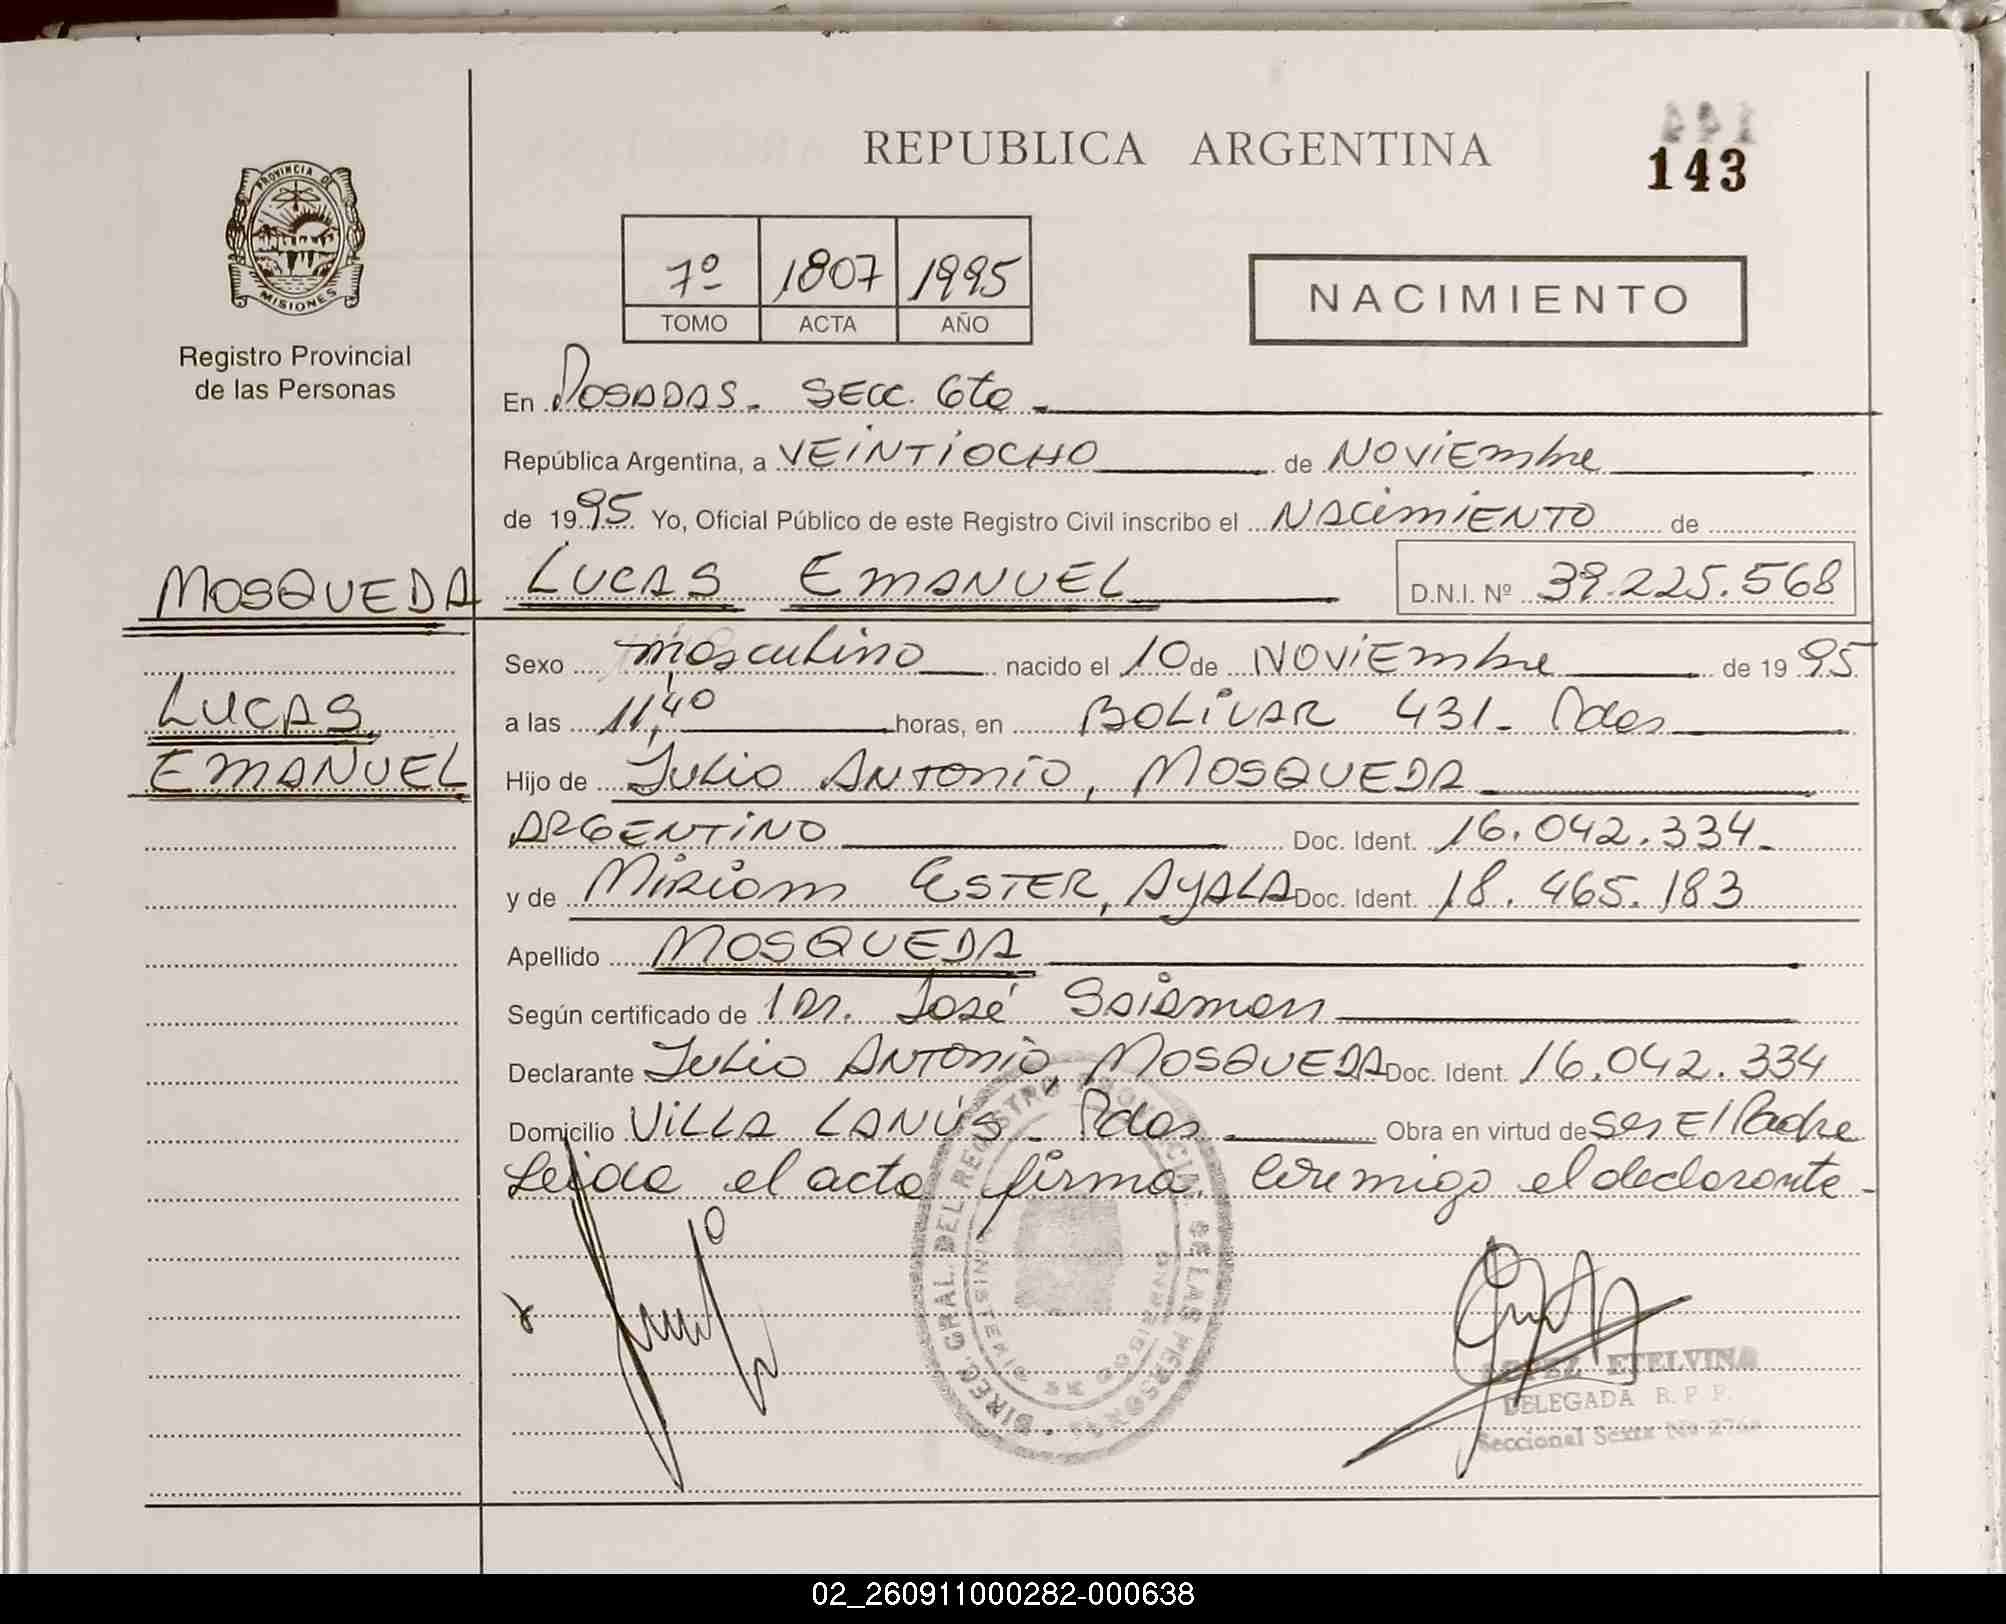 REPUBLICA ARGENTINA
143
PROVINCIA DE
MISIONES
Registro Provincial
de las Personas
7º 1807 1995
TOMO ACTA AÑO
NACIMIENTO
En POSADAS. SECC. 6ta
República Argentina, a VEINTIOCHO de NOViEmbre
de 1995 Yo, Oficial Público de este Registro Civil inscribo el NACimiENTO de
MOSQUEDA LUCAS EMANUEL D.N.I. Nº 39.225.568
Sexo masculino nacido el 10 de NOViEmbre de 1995
LUCAS
a las 11,40 horas, en BOLÍVAR 431- Pdas
EMANUEL
Hijo de JULIO ANTONIO, MOSQUEDA
ARGENTINO Doc. Ident. 16.042.334.
y de Miriam ESTER, AyALA Doc. Ident. 18.465.183
Apellido MOSQUEDA
Según certificado de Dr. José
Declarante JULIO ANTONIO, MOSQUEDA Doc. Ident. 16.042.334
Domicilio ViLLA LANÚS - Pdas Obra en virtud de ser El Padre
Leida el acta firma conmigo el declarante-
DIREC. GRAL. DEL REGISTRO PROVINCIAL DE LAS PERSONAS
LOPEZ ETELVINA
DELEGADA R. P. P.
Seccional Sexta Nº
02_260911000282-000638